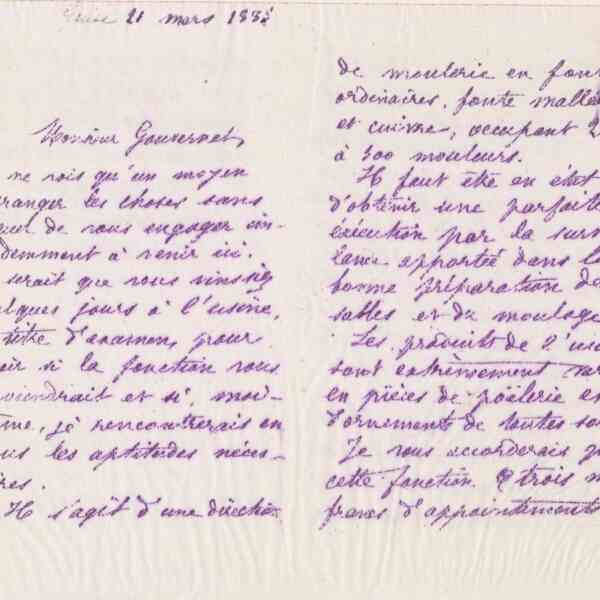 Guise 21 mars 188
Monsieur Gouvernet,
ne vois qu'un moyen
ranger les choses sans
quer de vous engager im-
demment à venir ici.
serait que vous vinssiez
elques jours à l'usine,
titre d'examen, pour
oir si la fonction vous
viendrait et si, moi-
ême, je rencontrerais en
us les aptitudes néces-
res.
Il s'agit d'une direction
de moulerie en fon
ordinaires, fonte mallé
et cuivre, occupant 2
à 300 mouleurs.
Il faut être en état
d'obtenir une parfaite
exécution par la surv
lance apportée dans l
bonne préparation de
sables et du moulage
Les produits de l'us
sont extrêmement var
en pièces de poëlerie e
d'ornement de toutes so
Je vous accorderais p
cette fonction trois m
francs d'appointements